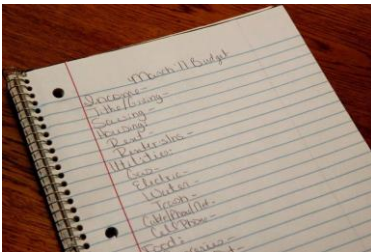 March 11 Budget
Income-
Tithe/Giving-
Saving-
Housing:
Rent-
Renters Ins.-
Utilities-
Gas-
Electric-
Water-
Trash-
Cable/Phone/Net-
Cell Phone-
Food: